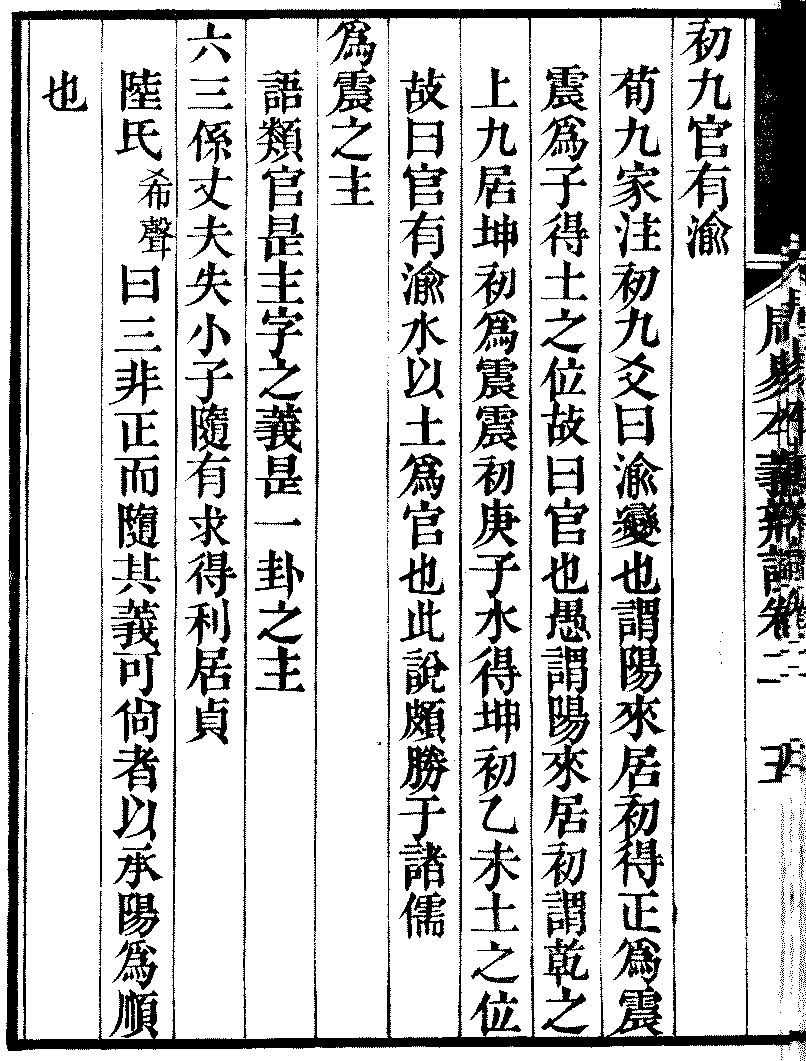 初九官有渝
荀九家注初九爻曰渝變也謂陽來居初得正爲震
震爲子得土之位故曰官也愚謂陽來居初謂乾之
上九居坤初爲震震初庚子水得坤初乙未土之位
故曰官有渝水以土爲官也此說頗勝于諸儒
爲震之主
語類官是主字之義是一卦之主
六三係丈夫失小子隨有求得利居貞
陸氏希聲曰三非正而隨其義可尙者以承陽爲順
也